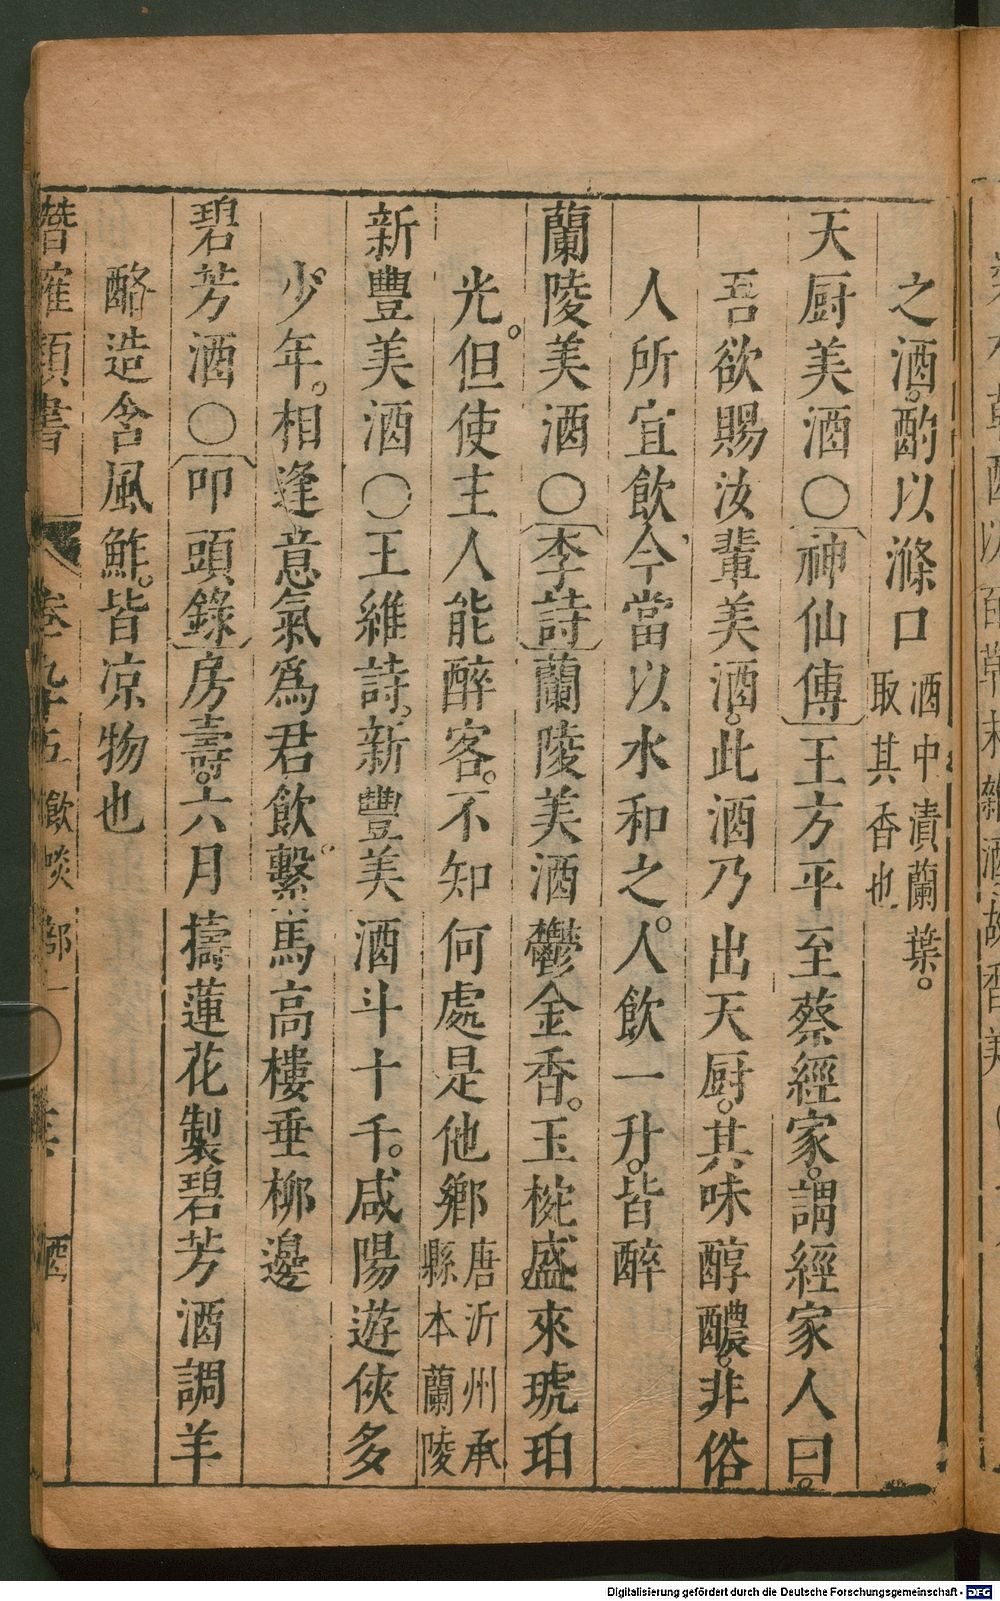 之酒。酌以滌口酒中漬蘭葉。取其香也
天厨美酒○神仙傳王方平至蔡經家。謂經家人曰。
吾欲賜汝輩美酒。此酒乃出天厨。其味醇醲。非俗
人所宜飲。今當以水和之。人飲一升。皆醉
蘭陵美酒○李詩蘭陵美酒鬱金香。玉椀盛來琥珀
光。但使主人能醉客。不知何處是他鄉唐沂州承縣本蘭陵
新豐美酒○王維詩。新豐美酒斗十千。咸陽遊俠多
少年。相逢意氣爲君飲。繫馬高樓垂柳邊
碧芳酒○叩頭錄房壽。六月擣蓮花製碧芳酒調羊
酪造含風鮓。皆凉物也
潛確類書 卷九十五 飲啖部一 酒
Digitalisierung gefördert durch die Deutsche Forschungsgemeinschaft - DFG